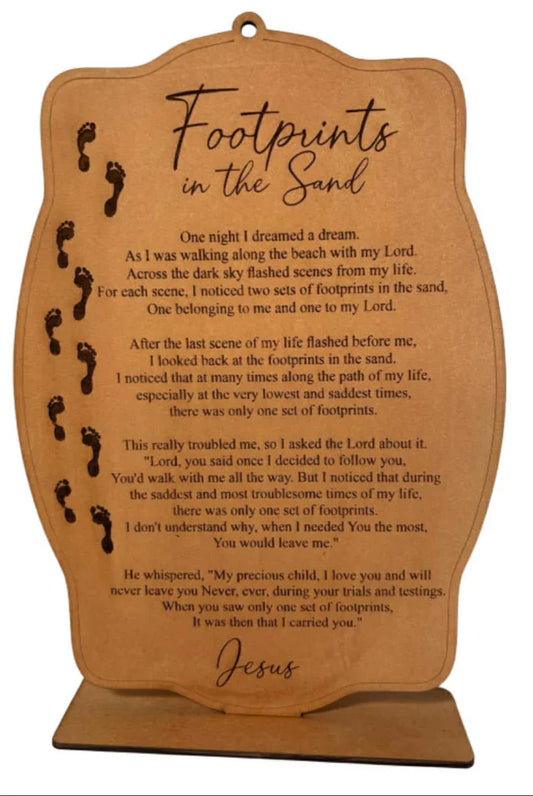 Footprints
in the Sand
One night I dreamed a dream.
As I was walking along the beach with my Lord.
Across the dark sky flashed scenes from my life.
For each scene, I noticed two sets of footprints in the sand,
One belonging to me and one to my Lord.
After the last scene of my life flashed before me,
I looked back at the footprints in the sand.
I noticed that at many times along the path of my life,
especially at the very lowest and saddest times,
there was only one set of footprints.
This really troubled me, so I asked the Lord about it.
"Lord, you said once I decided to follow you,
You'd walk with me all the way. But I noticed that during
the saddest and most troublesome times of my life,
there was only one set of footprints.
I don't understand why, when I needed You the most,
You would leave me."
He whispered, "My precious child, I love you and will
never leave you Never, ever, during your trials and testings.
When you saw only one set of footprints,
It was then that I carried you."
Jesus